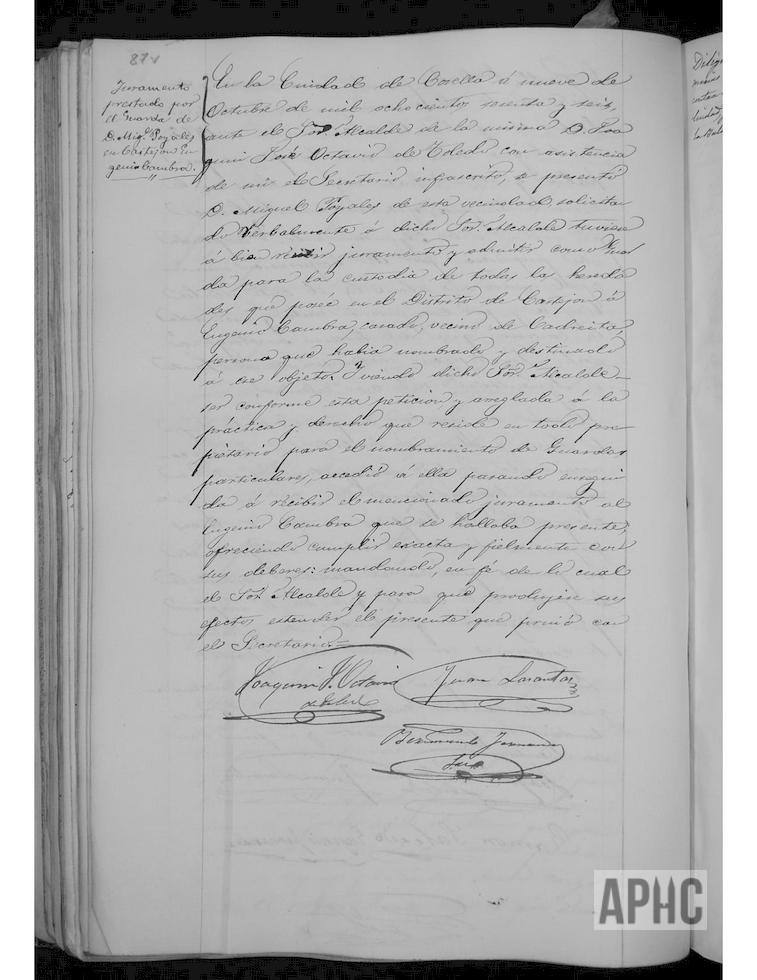 87v
Juramento
prestado por
el Guarda de
D. Migl. Poyales
en Castejon Eu-
genio Cambra.
En la Ciudad de Corella á nueve de
Octubre de mil ochocientos seenta y seis
ante el Sor. Alcalde de la misma D. Joa
quin José Octavio de Toledo con asistencia
de mi el Secretario infrascrito, se presentó
D. Miguel Poyales de esta vecindad solicitan
do verbalmente á dicho Sor. Alcalde tuviese
á bien recibir juramento y admitir como Guar
da para la custodia de todas las hereda
des que poseé en el Distrito de Castejon á
Eugenio Cambra, casado, vecino de Cadreita,
persona que habia nombrado y destinado
á ese objeto. Y viendo dicho Sor. Alcalde
ser conforme esta peticion y arreglada á la
práctica y derecho que reside en todo pro-
pietario para el nombramiento de Guardas
particulares, accedió á ella pasando enseguí
da á recibir el mencionado juramento al
Eugenio Cambra que se hallaba presente,
ofreciendo cumplir exacta y fielmente con
sus deberes: mandando, en fé de lo cual
el Sor. Alcalde y para que produjese sus
efectos estender el presente que firmó con
el Secretario.=
Joaquin J. Octavio
de Toledo
Juan
APHC